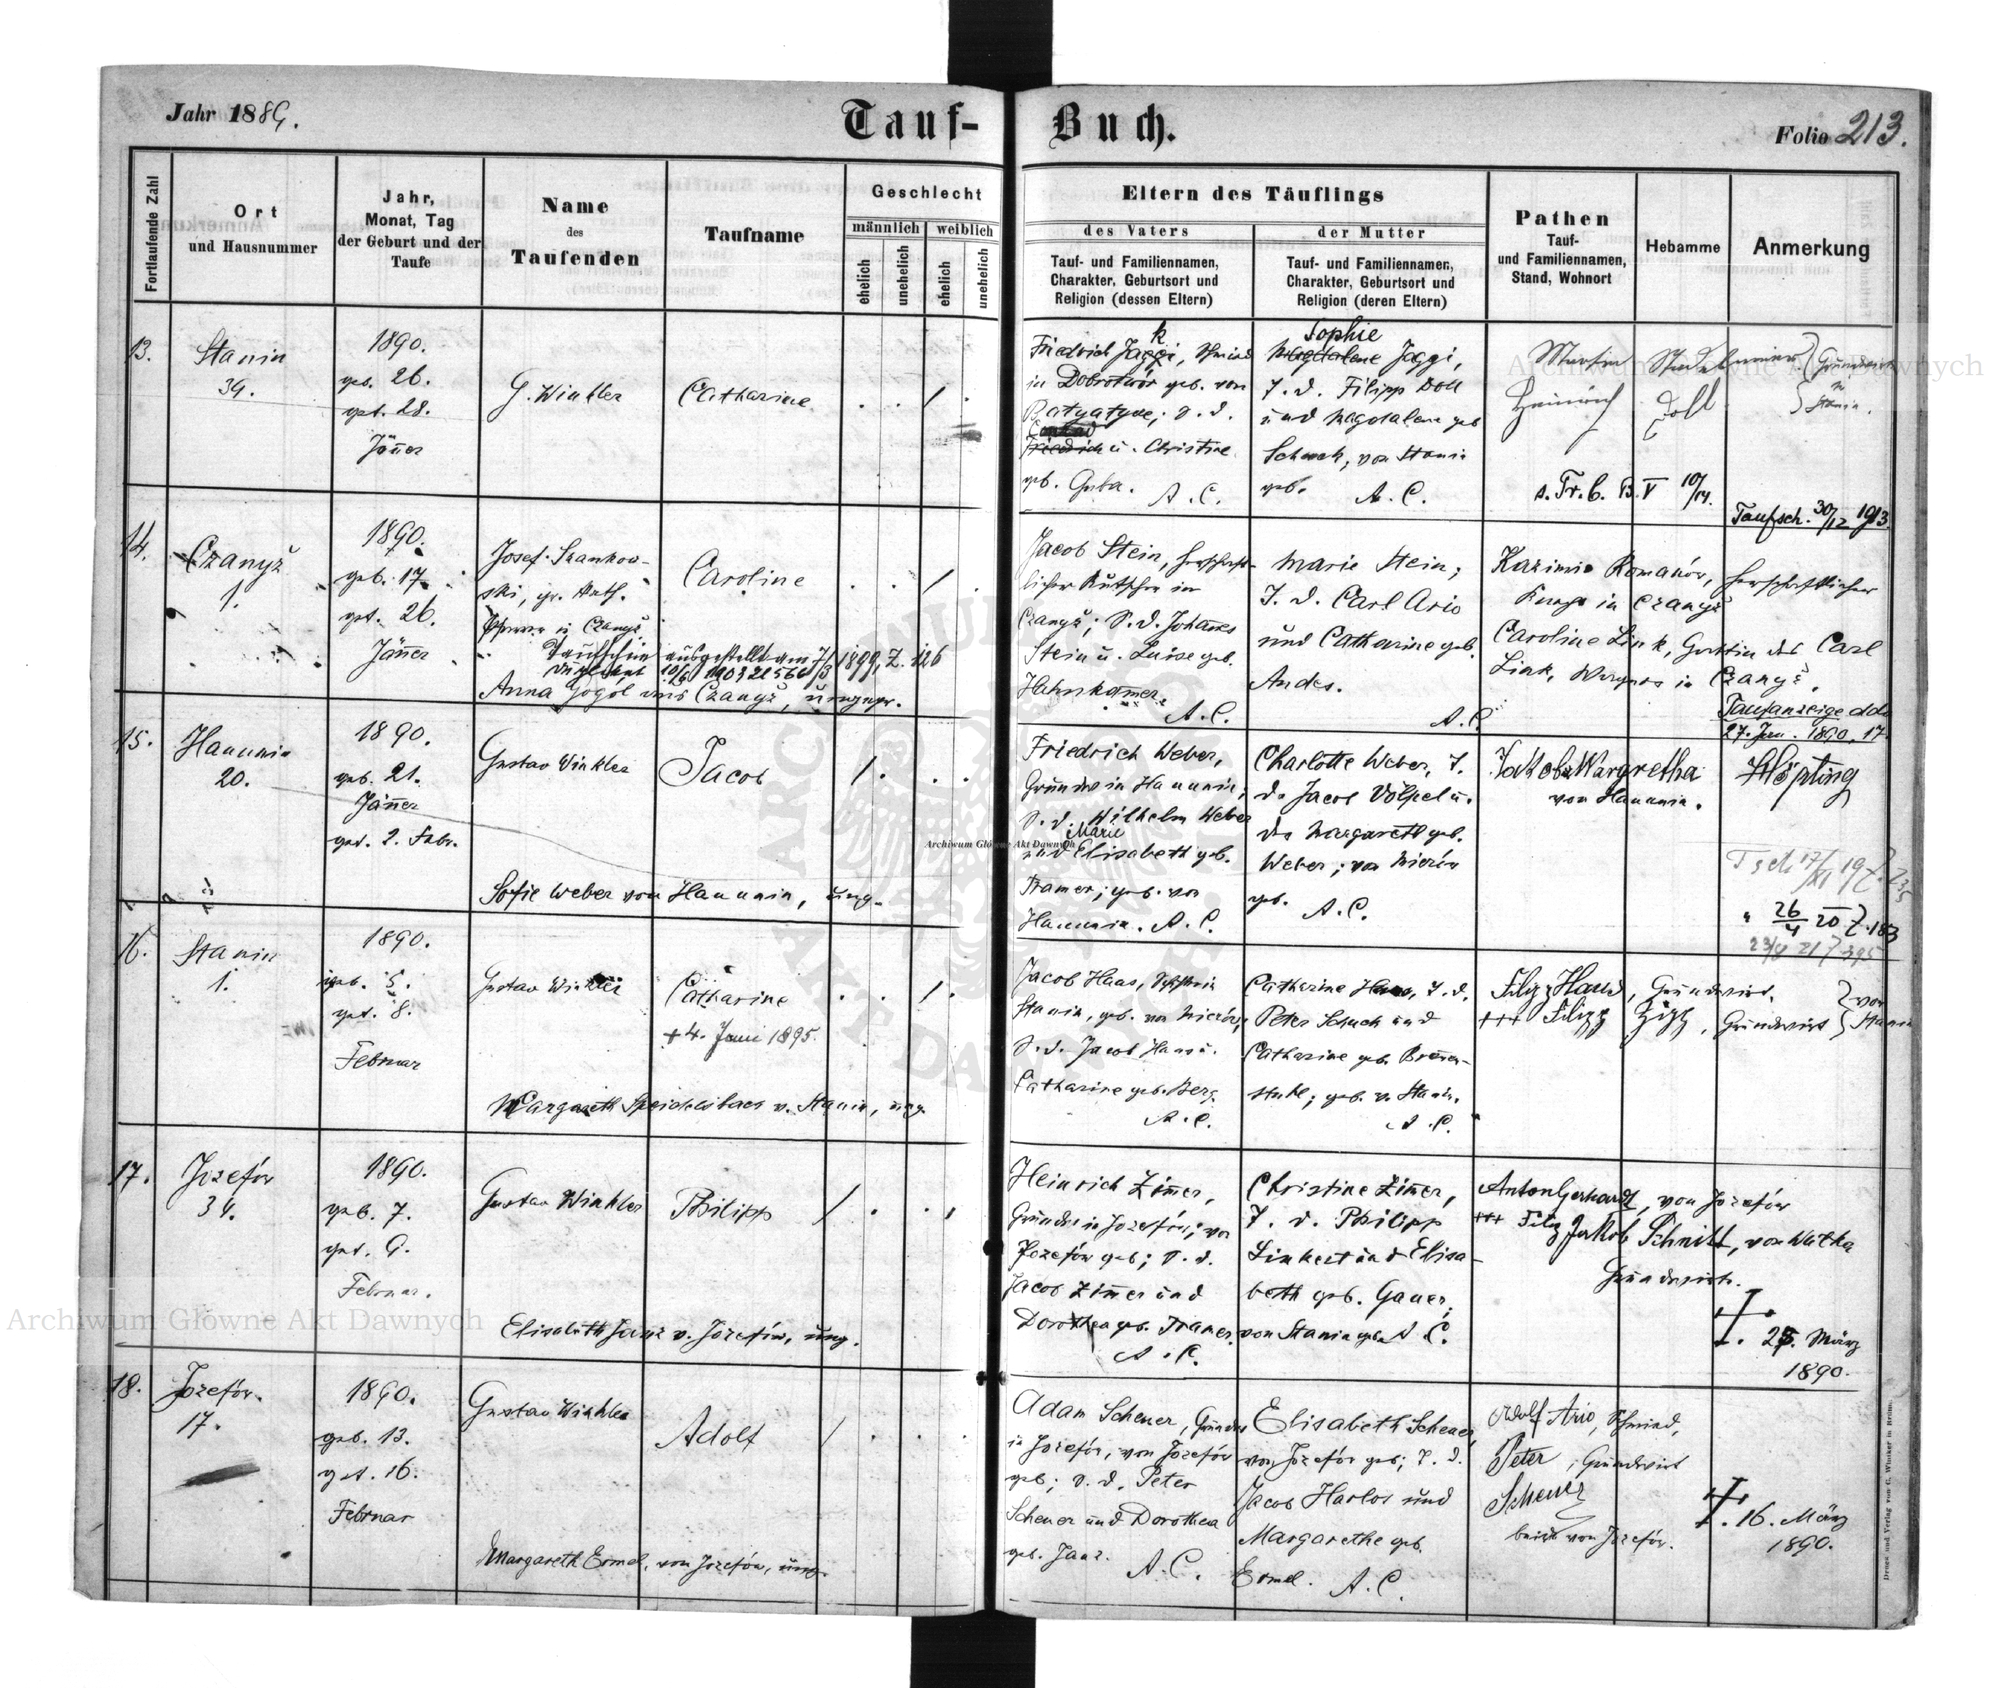 Jahr 1889.
Tauf-Buch.
Folio 213.
Fortlaufende Zahl
Ort
und Hausnummer
Jahr,
Monat, Tag
der Geburt und der
Taufe
Name
des
Taufenden
Taufname
Geschlecht
männlich
weiblich
ehelich
unehelich
ehelich
unehelich
Eltern des Täuflings
des Vaters
Tauf- und Familiennamen,
Charakter, Geburtsort und
Religion (dessen Eltern)
der Mutter
Tauf- und Familiennamen,
Charakter, Geburtsort und
Religion (deren Eltern)
Pathen
Tauf-
und Familiennamen,
Stand, Wohnort
Hebamme
Anmerkung
13.
Stanin
39.
1890.
geb. 26.
get. 28.
Jänner
G. Winkler
Catharine
Friedrich Jaggi, Schmied
in Dobrotwór geb. von
Batyatyce; S. d.
Friedrich u. Christine
geb. Guba. A. C.
Sophie
Magdalene Jaggi,
T. d. Filipp Doll
und Magdalene geb
Schuch, von Stanin
geb. A. C.
Martin
Heinrich Doll
Grundwirte
in
Stanin.
s. Tr. b. B. V 10/14.
Taufsch. 30/12 1913.
14.
Czanyż
1.
1890.
geb. 17.
get. 26.
Jänner
Josef Szankow-
ski, gr. kath.
Pfarrer in Czanyż
Caroline
Taufschein ausgestellt am 7/3 1899, Z. 126
Anna Gogol aus Czanyż, ungepr.
Jacob Stein, herrschaft-
licher Kutscher in
Czanyż; S. d. Johannes
Stein u. Luise geb.
Hahnkamer.
A. C.
Marie Stein;
T. d. Carl Ario
und Catharine geb.
Andes.
A. C.
Kazimir Romanów, herrschaftlicher
in Czanyż
Caroline Link, Gattin des Carl
Link, Wagners in Czanyż.
Taufanzeige ddo
27. Jan. 1890, 17.
15.
Hanunin
20.
1890.
geb. 21.
Jänner
get. 2. Febr.
Gustav Winkler
Jacob
Sofie Weber von Hanunin, ung.
Friedrich Weber,
Grundw in Hanunin,
S. d. Wilhelm Weber
Marie
und Elisabeth geb.
Kramer; geb. von
Hanunin. A. C.
Charlotte Weber, T.
d. Jacob Völpel u.
der Margareth geb.
Weber; von Mierów
geb. A. C.
Jakob Margretha Höpting
von Hanunin.
Tsch 17/XI 19
" 26/4 20 Z. 183
16.
Stanin
1.
1890.
geb. 5.
get. 8.
Februar
Gustav Winkler
Catharine
+ 4. Juni 1895.
Margareth Speichelsbach v. Stanin, ung.
Jacob Haas,
Stanin, geb. von Mierów,
S. d. Jacob Haas u.
Catharine geb. Berg.
A. C.
Catharine Haas, T. d.
Peter Schuch und
Catharine geb. Brenn-
stuhl; geb. v. Stanin.
A. C.
Filip Haas, Grundwirt,
+++ Filipp, Grundwirt
von
Stanin
17.
Józefów
34.
1890.
geb. 7.
get. 9.
Februar.
Gustav Winkler
Philipp
Elisabeth Janz v. Józefów, ung.
Heinrich Zimmer,
Grundw in Józefów; von
Józefów geb; S. d.
Jacob Zimmer und
Dorothea geb. Kramer.
A. C.
Christine Zimmer,
T. d. Philipp
Linkert und Elisa-
beth geb. Gauer;
von Stanin geb. A. C.
Anton Gerhardt, von Józefów
+++ Jakob Schmitt, von Wulka
Grundwirte.
†. 25. März
1890.
18.
Józefów.
17.
1890.
geb. 13.
get. 16.
Februar
Gustav Winkler
Adolf
Margareth Ermel, von Józefów, ung.
Adam Scheuer, Grundw
in Józefów, von Józefów
geb; S. d. Peter
Scheuer und Dorothea
geb. Janz. A. C.
Elisabeth Scheuer,
von Józefów geb; T. d.
Jacob Harlos und
Margarethe geb.
Ermel. A. C.
Adolf Ario, Schmied,
Peter, Grundwirt
Scheuer
beide von Józefów.
†. 16. März
1890.
Druck und Verlag von C. Winiker in Brünn.
Archiwum Główne Akt Dawnych
Archiwum Główne Akt Dawnych
Archiwum Główne Akt Dawnych